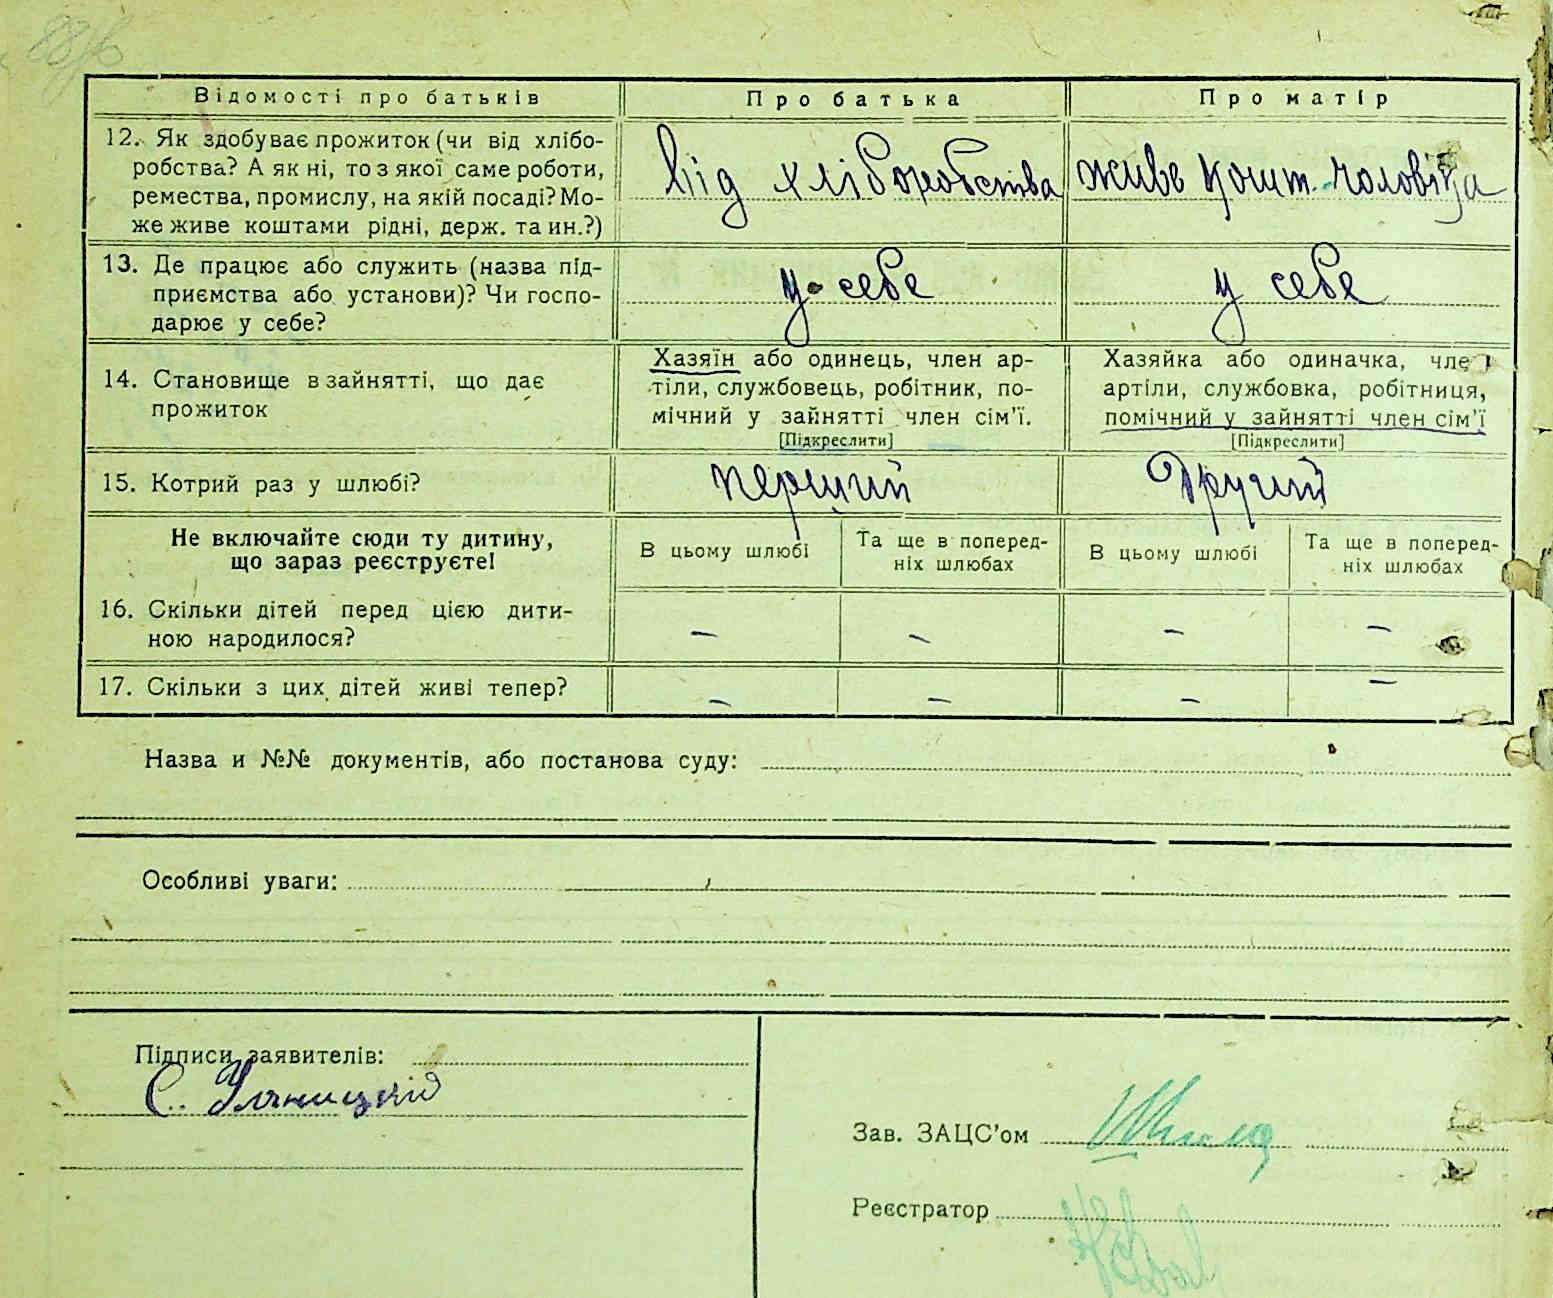 Відомості про батьків
Про батька
Про матір
12. Як здобуває прожиток (чи від хлібо-
робства? А як ні, то з якої саме роботи,
ремества, промислу, на якій посаді? Мо-
же живе коштами рідні, держ. та ин.?)
від хліборобства
живе кошт. чоловіка
13. Де працює або служить (назва під-
приємства або установи)? Чи госпо-
дарює у себе?
у себе
у себе
14. Становище в зайнятті, що дає
прожиток
Хазяїн або одинець, член ар-
тіли, службовець, робітник, по-
мічний у зайнятті член сім'ї.
[Підкреслити]
Хазяйка або одиначка, чле
артіли, службовка, робітниця,
помічний у зайнятті член сім'ї
[Підкреслити]
15. Котрий раз у шлюбі?
перший
Другий
Не включайте сюди ту дитину,
що зараз реєструєте!
В цьому шлюбі
Та ще в поперед-
ніх шлюбах
В цьому шлюбі
Та ще в поперед-
ніх шлюбах
16. Скільки дітей перед цією дити-
ною народилося?
— — — —
17. Скільки з цих дітей живі тепер?
— — — —
Назва и №№ документів, або постанова суду:
Особливі уваги:
Підписи заявителів:
С. Уляницкий
Зав. ЗАЦС'ом
Реєстратор